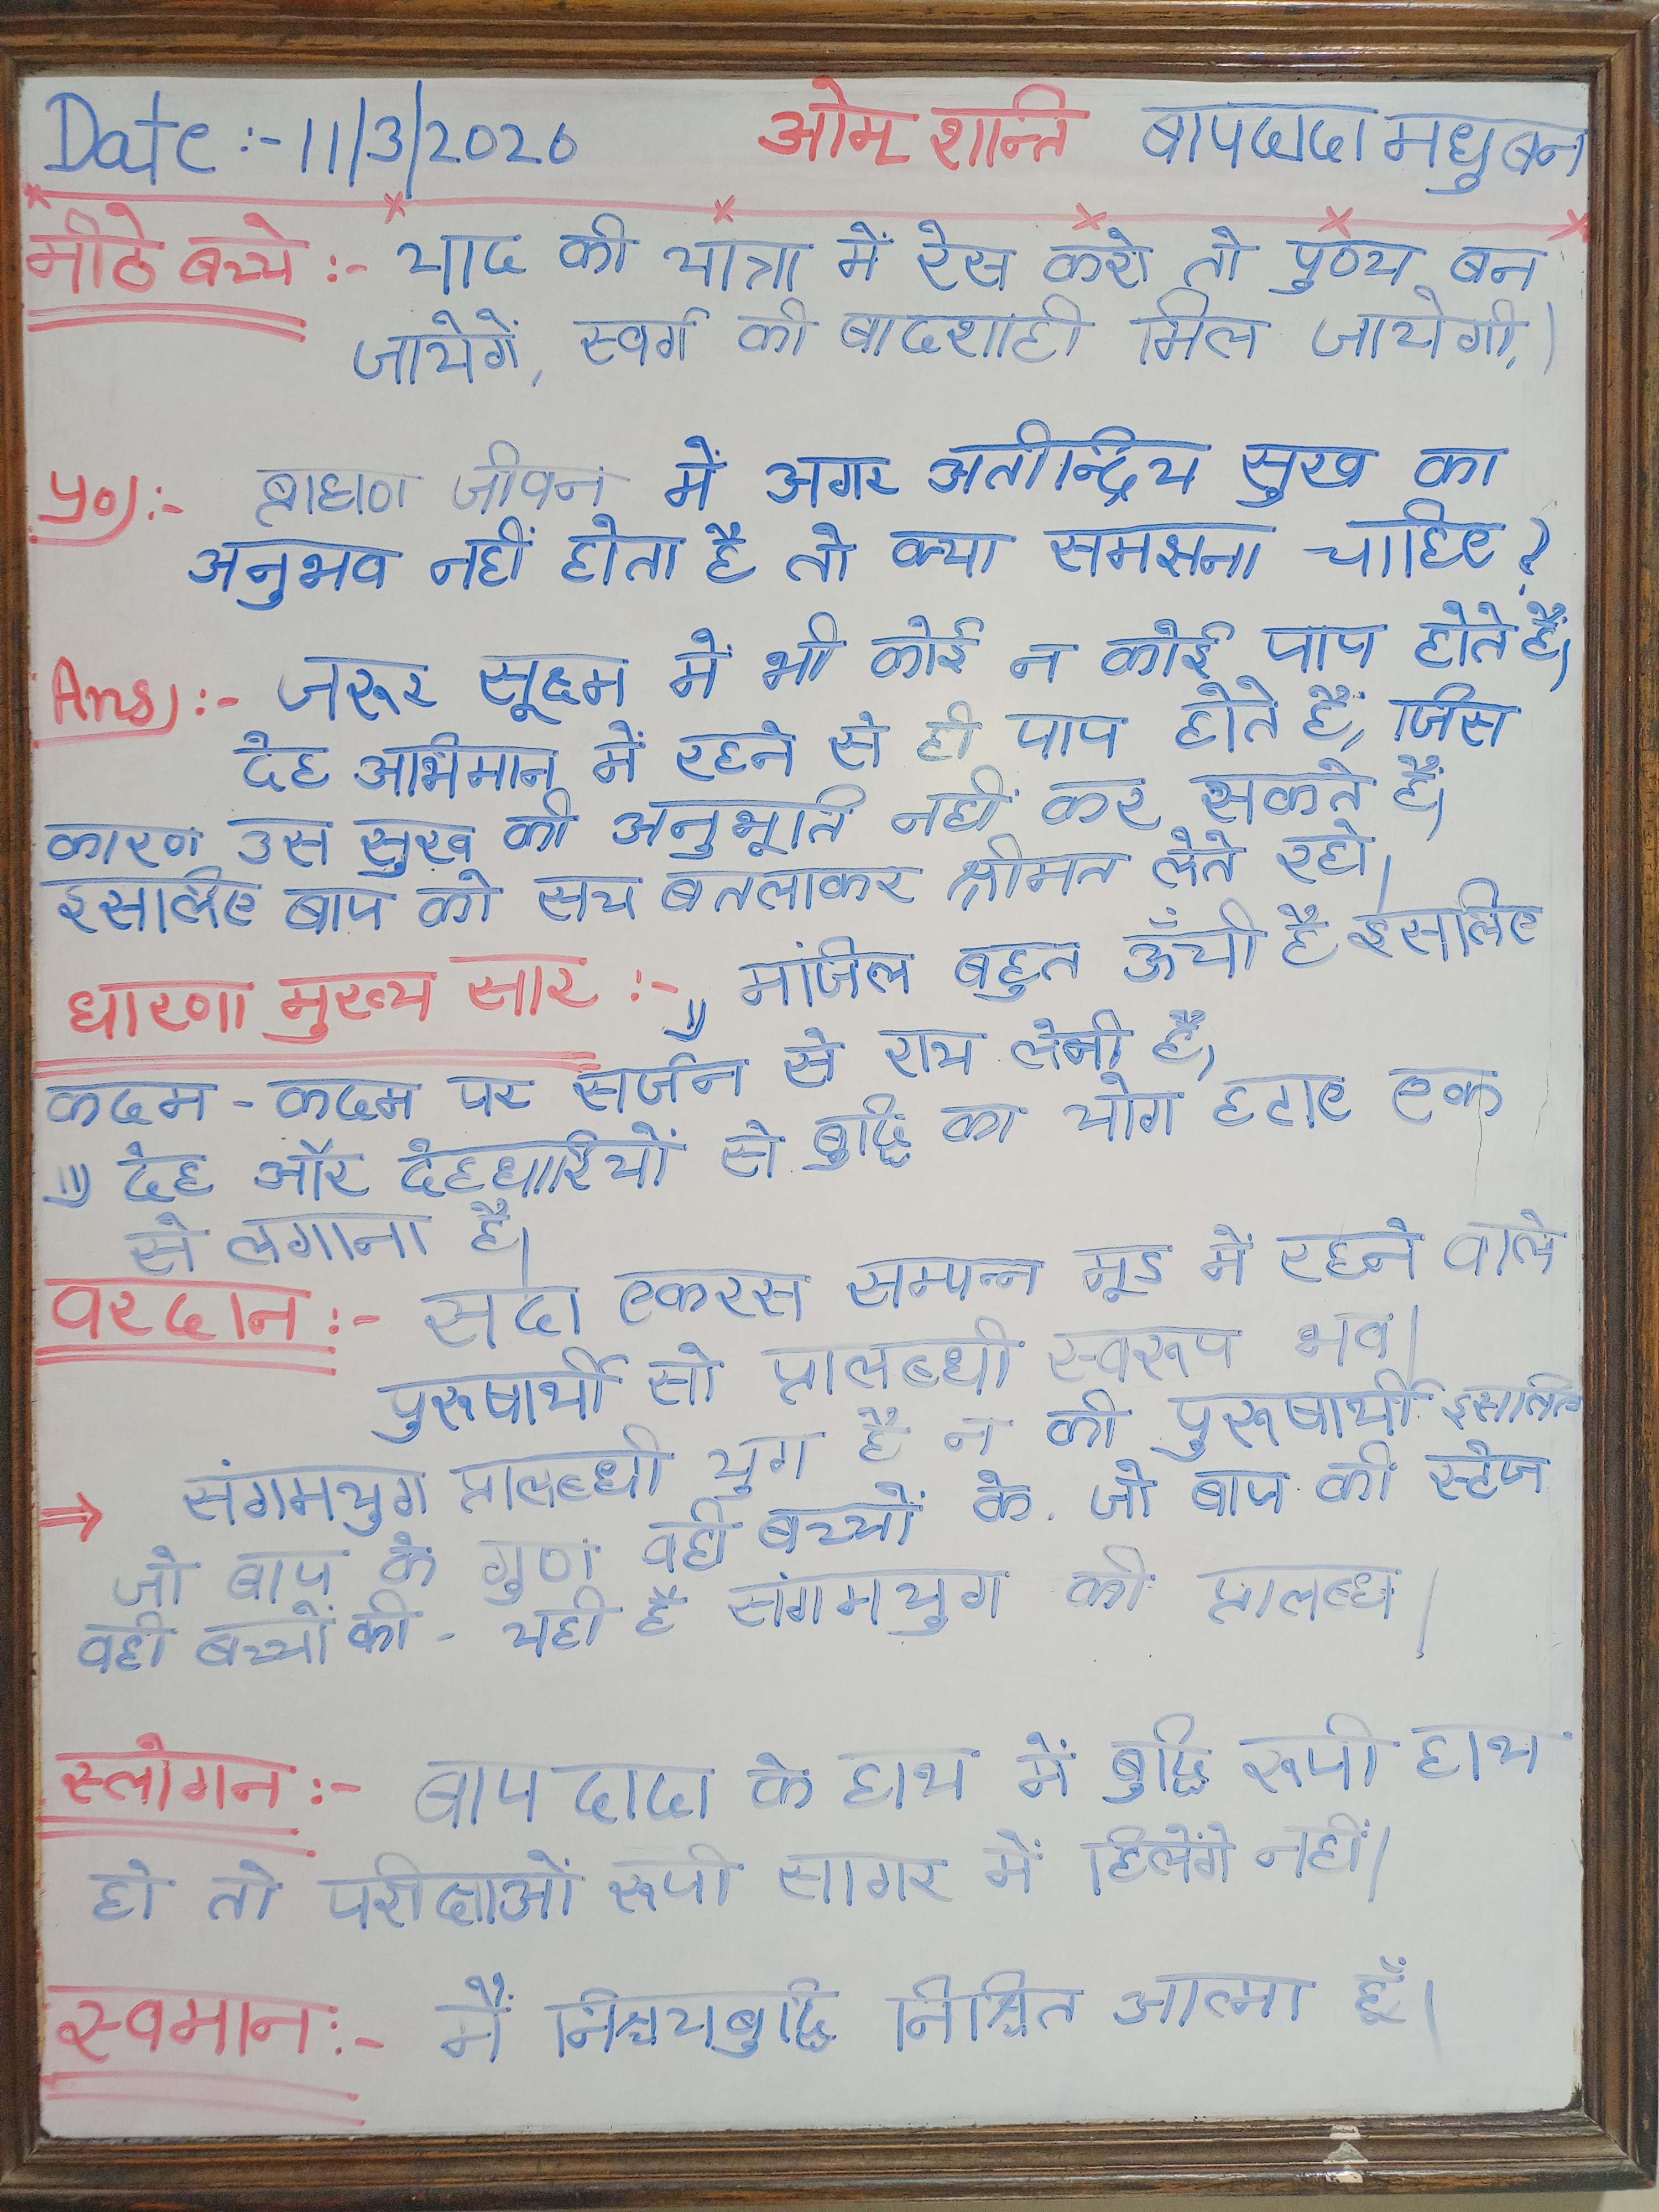 Date :- 11/3/2026 ओम शान्ति बापदादा मधुबन
मीठे बच्चे :- याद की यात्रा में रेस करो तो पुण्य बन
जायेगें, स्वर्ग की बादशाही मिल जायेगी।
प्र०) :- ब्राह्मण जीवन में अगर अतीन्द्रिय सुख का
अनुभव नहीं होता है तो क्या समझना चाहिए ?
Ans) :- जरूर सूक्ष्म में भी कोई न कोई पाप होते हैं,
देह अभिमान में रहने से ही पाप होते हैं, जिस
कारण उस सुख की अनुभूति नहीं कर सकते हैं,
इसलिए बाप को सच बतलाकर श्रीमत लेते रहो।
धारणा मुख्य सार :- 1) मंजिल बहुत ऊँची है इसलिए
कदम - कदम पर सर्जन से राय लेनी है,
11) देह और देहधारियों से बुद्धि का योग हटाए एक
से लगाना है।
वरदान :- सदा एकरस सम्पन्न मूड में रहने वाले
पुरूषार्थी सो प्रालब्धी स्वरूप भव।
⇒ संगमयुग प्रालब्धी युग है न की पुरूषार्थी इसलिए
जो बाप के गुण वही बच्चों के. जो बाप की स्टेज
वही बच्चों की - यही है संगमयुग की प्रालब्ध।
स्लोगन :- बापदादा के हाथ में बुद्धि रूपी हाथ
हो तो परीक्षाओं रूपी सागर में हिलेंगे नहीं।
स्वमान :- मैं निश्चयबुद्धि निश्चिंत आत्मा हूँ।